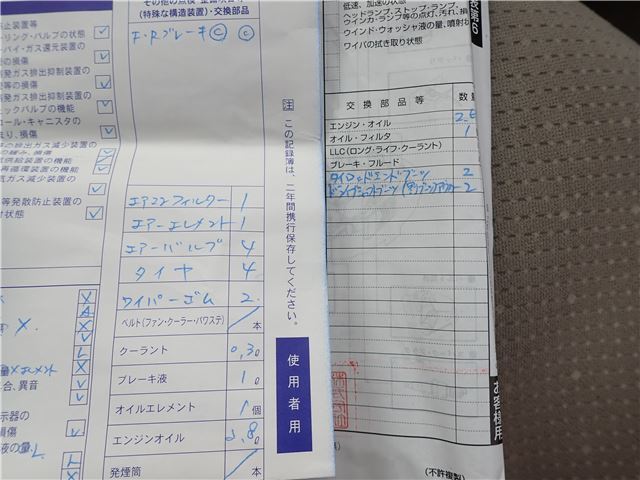 その他の点検・整備項目
(特殊な構造装置)・交換部品
F・Rブレーキ Ⓒ Ⓒ
止装置等
ーリング・バルブの状態
ーバイ・ガス還元装置の
の損傷
発ガス排出抑制装置の
管等の損傷
発ガス排出抑制装置の
ェックバルブの機能
コール・キャニスタの
まり、損傷
供給装置の機能
再循環装置の機能
気ガス減少装置の
等発散防止装置の
付状態
注 この記録簿は、二年間携行保存してください。
エアコンフィルター 1
エアーエレメント 1
エアーバルブ 4
タイヤ 4
ワイパーゴム 2
ベルト(ファン・クーラー・パワステ) 本
クーラント 0.3
ブレーキ液 1.0
オイルエレメント 1個
エンジンオイル
発煙筒 本
使用者用
合、異音
示器の
損傷
液の量、L
低速、加速の状態
ヘッドランプ、ストップ・ランプ、
ウインカ・ランプ等の点灯、汚れ、損
ウインド・ウォッシャ液の量、噴射
ワイパの拭き取り状態
交換部品等 数量
エンジン・オイル 2.6
オイル・フィルタ 1
LLC(ロング・ライフ・クーラント)
ブレーキ・フルード
タイロッドエンドブーツ 2
お客様用
(不許複製)